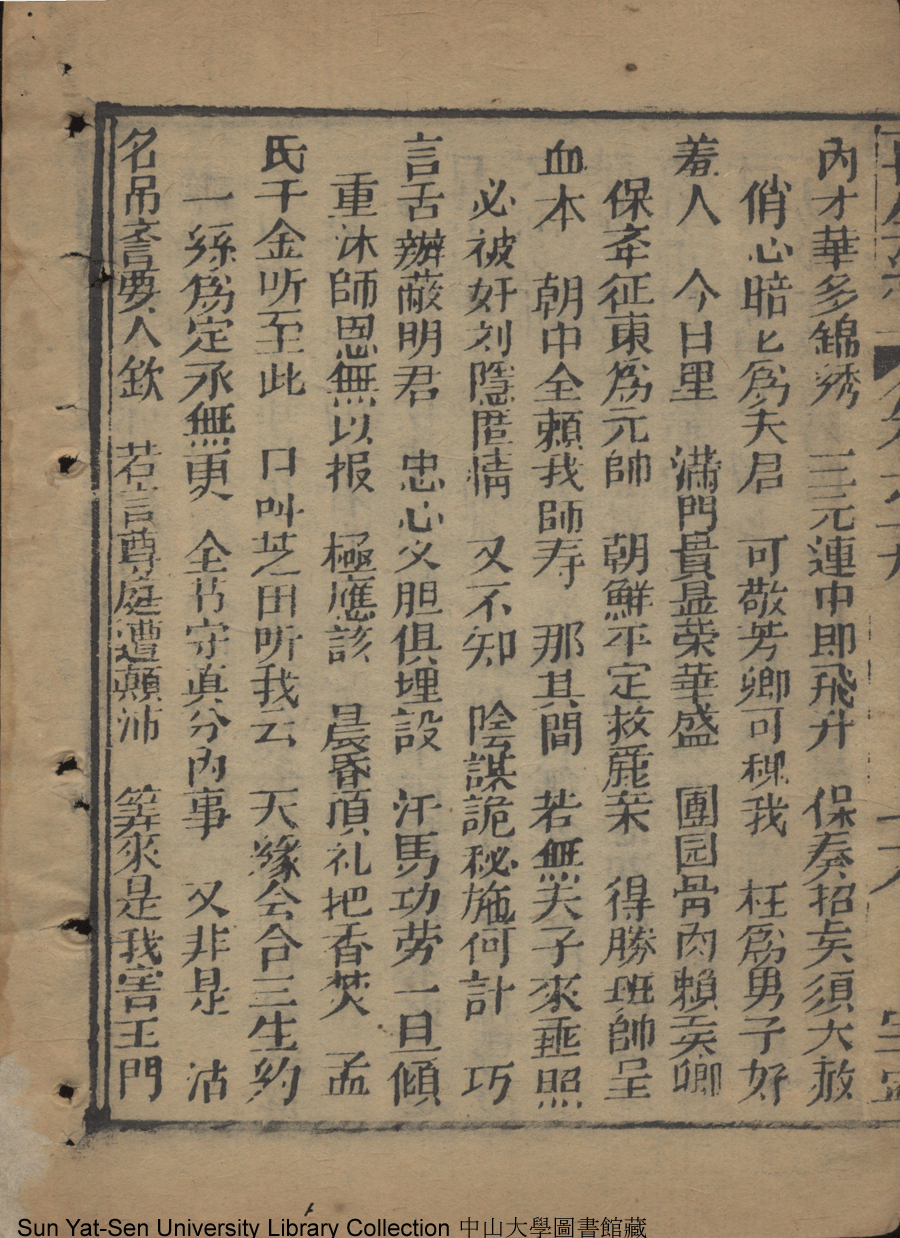 內才華多錦绣　三元連中即飛升　保奏招矣須大赦
俏心暗匕為夫君　可敬芳卿可穪我　枉為男子好
羞人　今日里　滿門貴显荣華盛　團园骨肉賴吴卿
保奎征東為元帥　朝鮮平定救鹿来　得勝班帥呈
血本　朝中全賴我師寿　那其間　若無夫子來垂照
必被奸刘隱匿情　又不知　陰謀詭秘施何計　巧
言舌辦蔽明君　忠心义胆俱埋設　汗馬功劳一旦傾
重沐師恩無以报　極應該　晨昏頂礼把香焚　孟
氏千金听至此　口叫芝田听我云　天緣会合三生約
一絲為定承無更　全节守眞分內事　又非是　沽
名吊誉要人欽　若言尊庭遭顛沛　筭來是我害王門
Sun Yat-Sen University Library Collection 中山大學圖書館藏